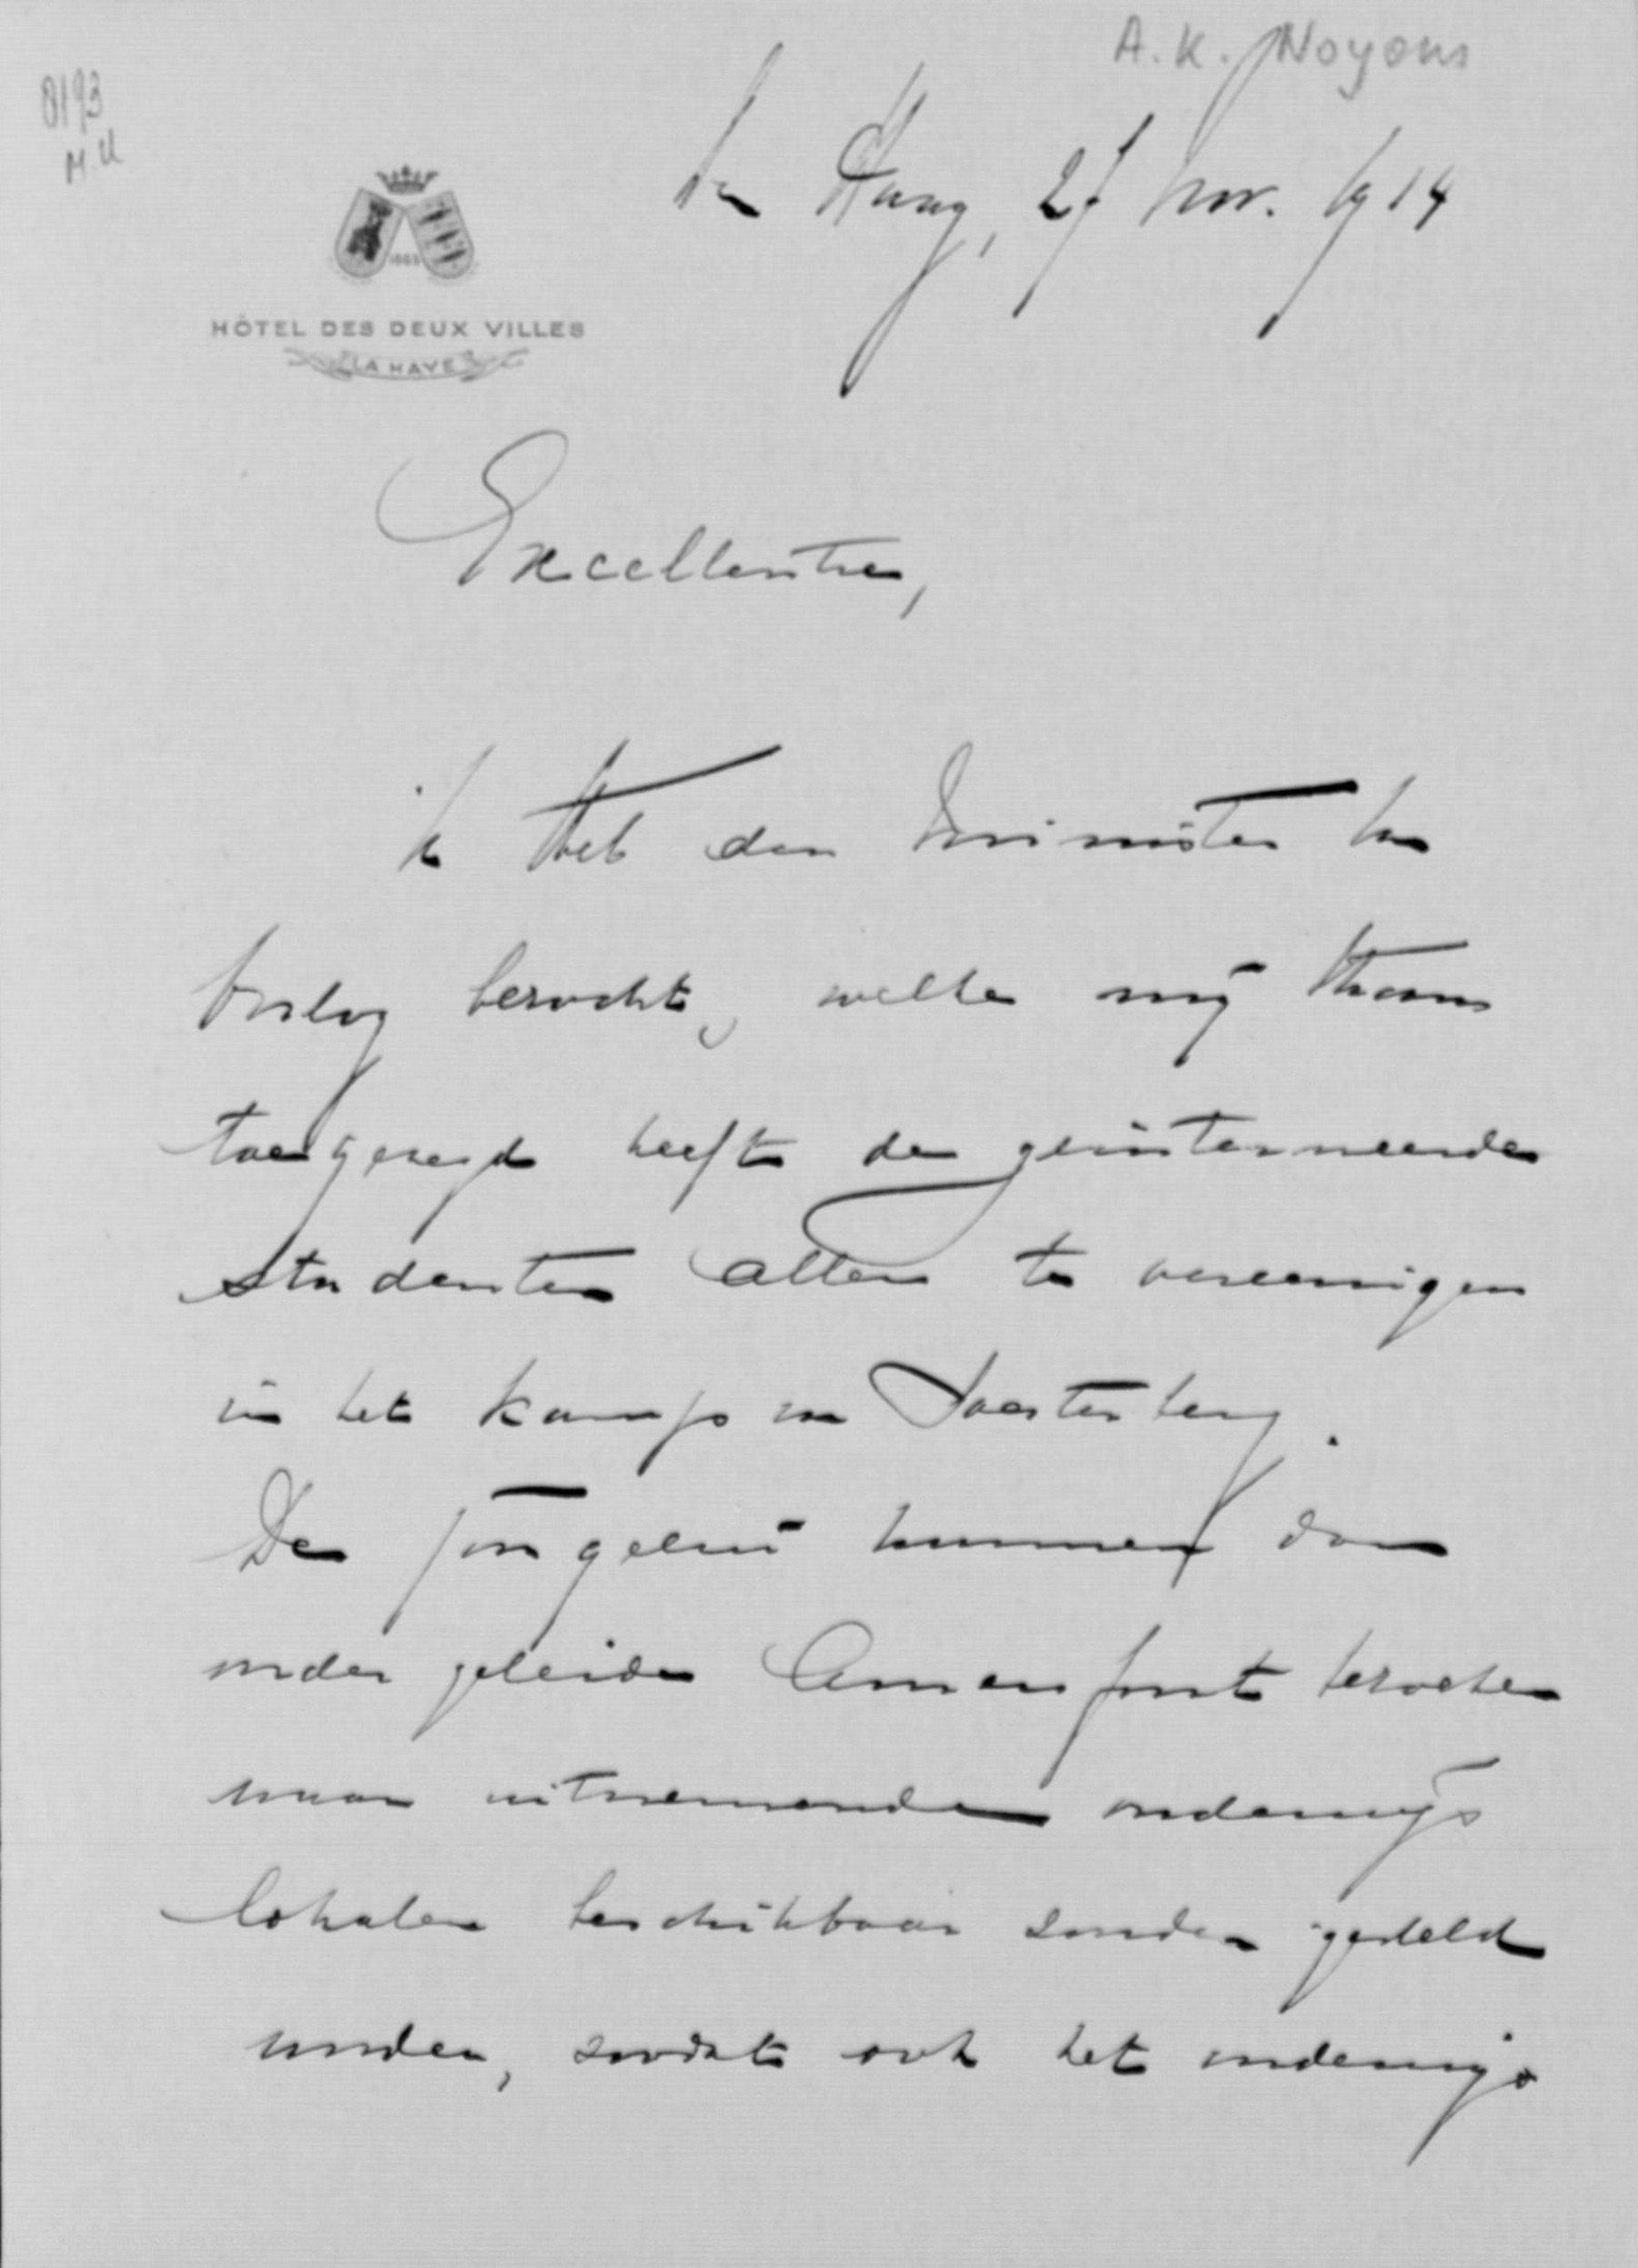 A.K. Noyons
8193
M U
den Haag, 27 Nov. 1914
1885
HÔTEL DES DEUX VILLES
LA HAYE
Excellentie,
ik heb den Minister van
Oorlog bezocht, welke mij thans
toegezegd heeft de geinterneerde
studenten allen te vereenigen
in het kamp van Soesterberg.
De jongelui kunnen dan
onder geleide Amersfoort bezoeken
waar uitnemende onderwijs
lokalen beschikbaar zouden gesteld
worden, zoodat ook het onderwijs